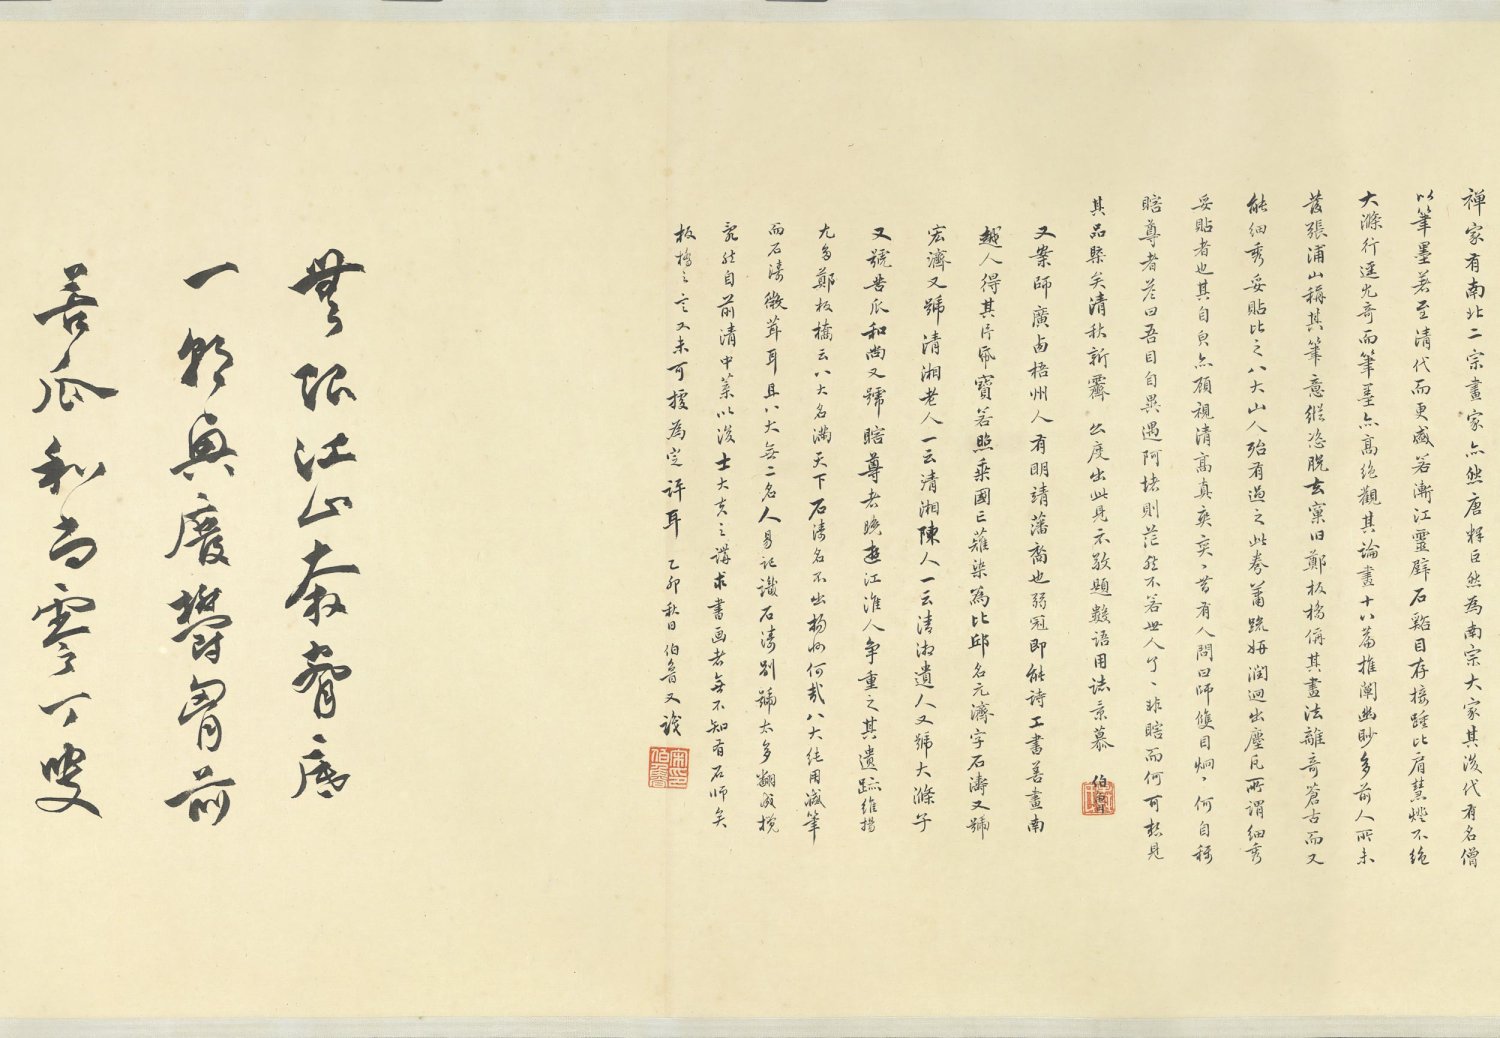 禅家有南北二宗畫家亦然唐釋巨然為南宗大家其後代有名僧
以筆墨著至清代而更盛若漸江靈壁石谿目存接踵比肩慧燈不絕
大滌行逕尤奇而筆墨亦高絕觀其論畫十八篇推闡幽眇多前人所未
發張浦山稱其筆意縱恣脫去窠臼鄭板橋偁其畫法離奇蒼古而又
能細秀妥貼比之八大山人殆有過之此卷蕭疏妍潤迥出塵凡所謂細秀
妥貼者也其自負亦頗視清高真奕奕昔有人問曰師雙目炯炯何自稱
瞎尊者答曰吾目自異遇阿堵則茫然不若世人了了非瞎而何可想見
其品槩矣清秋新霽公度出此見示敬題數語用誌景慕 伯魯
又案師廣西梧州人有明靖藩裔也弱冠即能詩工書善畫南
越人得其片紙寶若照乘國亡薙染為比邱名元濟字石濤又號
宏濟又號清湘老人一云清湘陳人一云清湘遺人又號大滌子
又號苦瓜和尚又號瞎尊者晚遊江淮人爭重之其遺跡維揚
尤多鄭板橋云八大名滿天下石濤名不出揚州何哉八大純用減筆
而石濤微茸耳且八大無二名人易記識石濤別號太多翻成攪
亂然自前清中葉以後士大夫之講求書画者無不知有石師矣
板橋之言又未可據為定評耳 乙卯秋日伯魯又識
宋印伯魯
無限江山奔脊底
一朝興廢鬱胷前
苦瓜和尚零丁叟